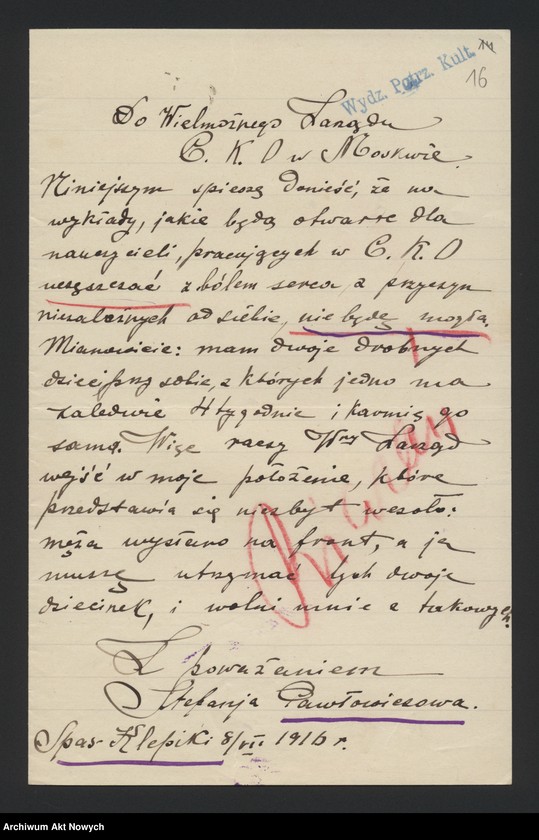 Wydz. Potrz. Kult.
16
Do Wielmożnego Zarządu
C. K. O w Moskwie.
Niniejszym spieszę donieść, że na
wykłady, jakie będą otwarte dla
nauczycieli, pracujących w C. K. O
uczęszczać z bólem serca z przyczyn
niezależnych od siebie, nie będę mogła.
Mianowicie: mam dwoje drobnych
dzieci przy sobie, z których jedno ma
zaledwie 4 tygodnie i karmię go
sama. Więc raczy Wny Zarząd
wejść w moje położenie, które
przedstawia się niezbyt wesoło:
męża wysłano na front, a ja
muszę utrzymać tych dwoje
dziecinek, i wolni mnie z takowych.
Z poważaniem
Stefanja Pawłowiczowa.
Spas-Klepiki 8/VII 1916 r.
Archiwum Akt Nowych